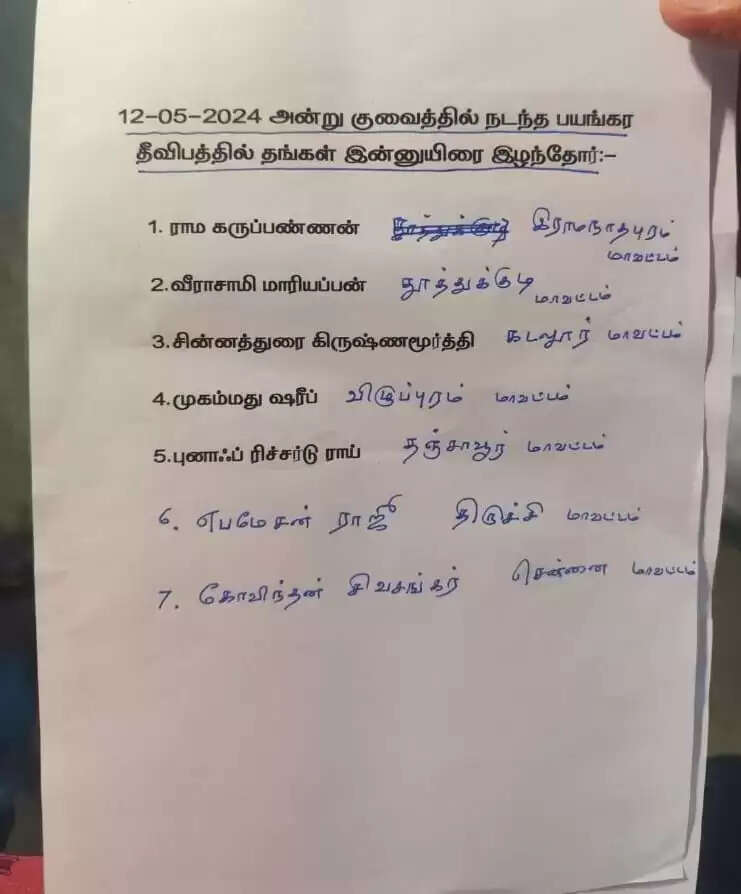 12-05-2024 அன்று குவைத்தில் நடந்த பயங்கர
தீவிபத்தில் தங்கள் இன்னுயிரை இழந்தோர்:-
1. ராம கருப்பண்ணன் இராமநாதபுரம்
மாவட்டம்
2.வீராசாமி மாரியப்பன் தூத்துக்குடி
மாவட்டம்
3.சின்னத்துரை கிருஷ்ணமூர்த்தி கடலூர் மாவட்டம்
4.முகம்மது ஷரீப் விழுப்புரம் மாவட்டம்
5.புனாஃப் ரிச்சர்டு ராய் தஞ்சாவூர் மாவட்டம்
6. எபமேசன் ராஜீ திருச்சி மாவட்டம்
7. கோவிந்தன் சிவசங்கர் சென்னை மாவட்டம்